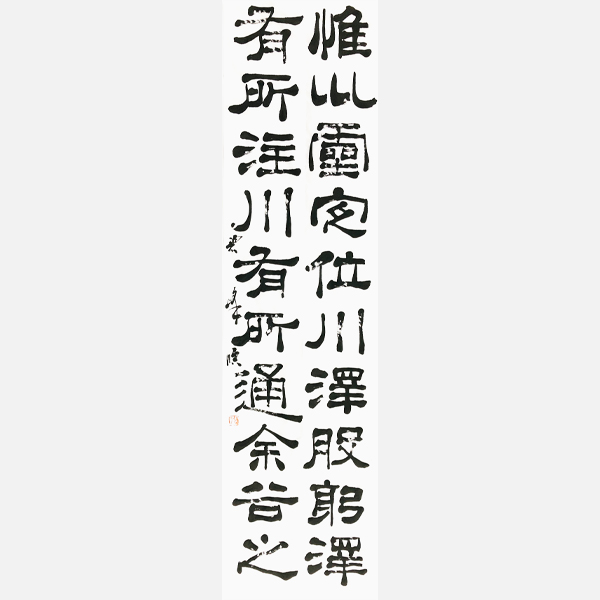 惟巛靈定位川澤股躬澤
有所注川有所通余谷之